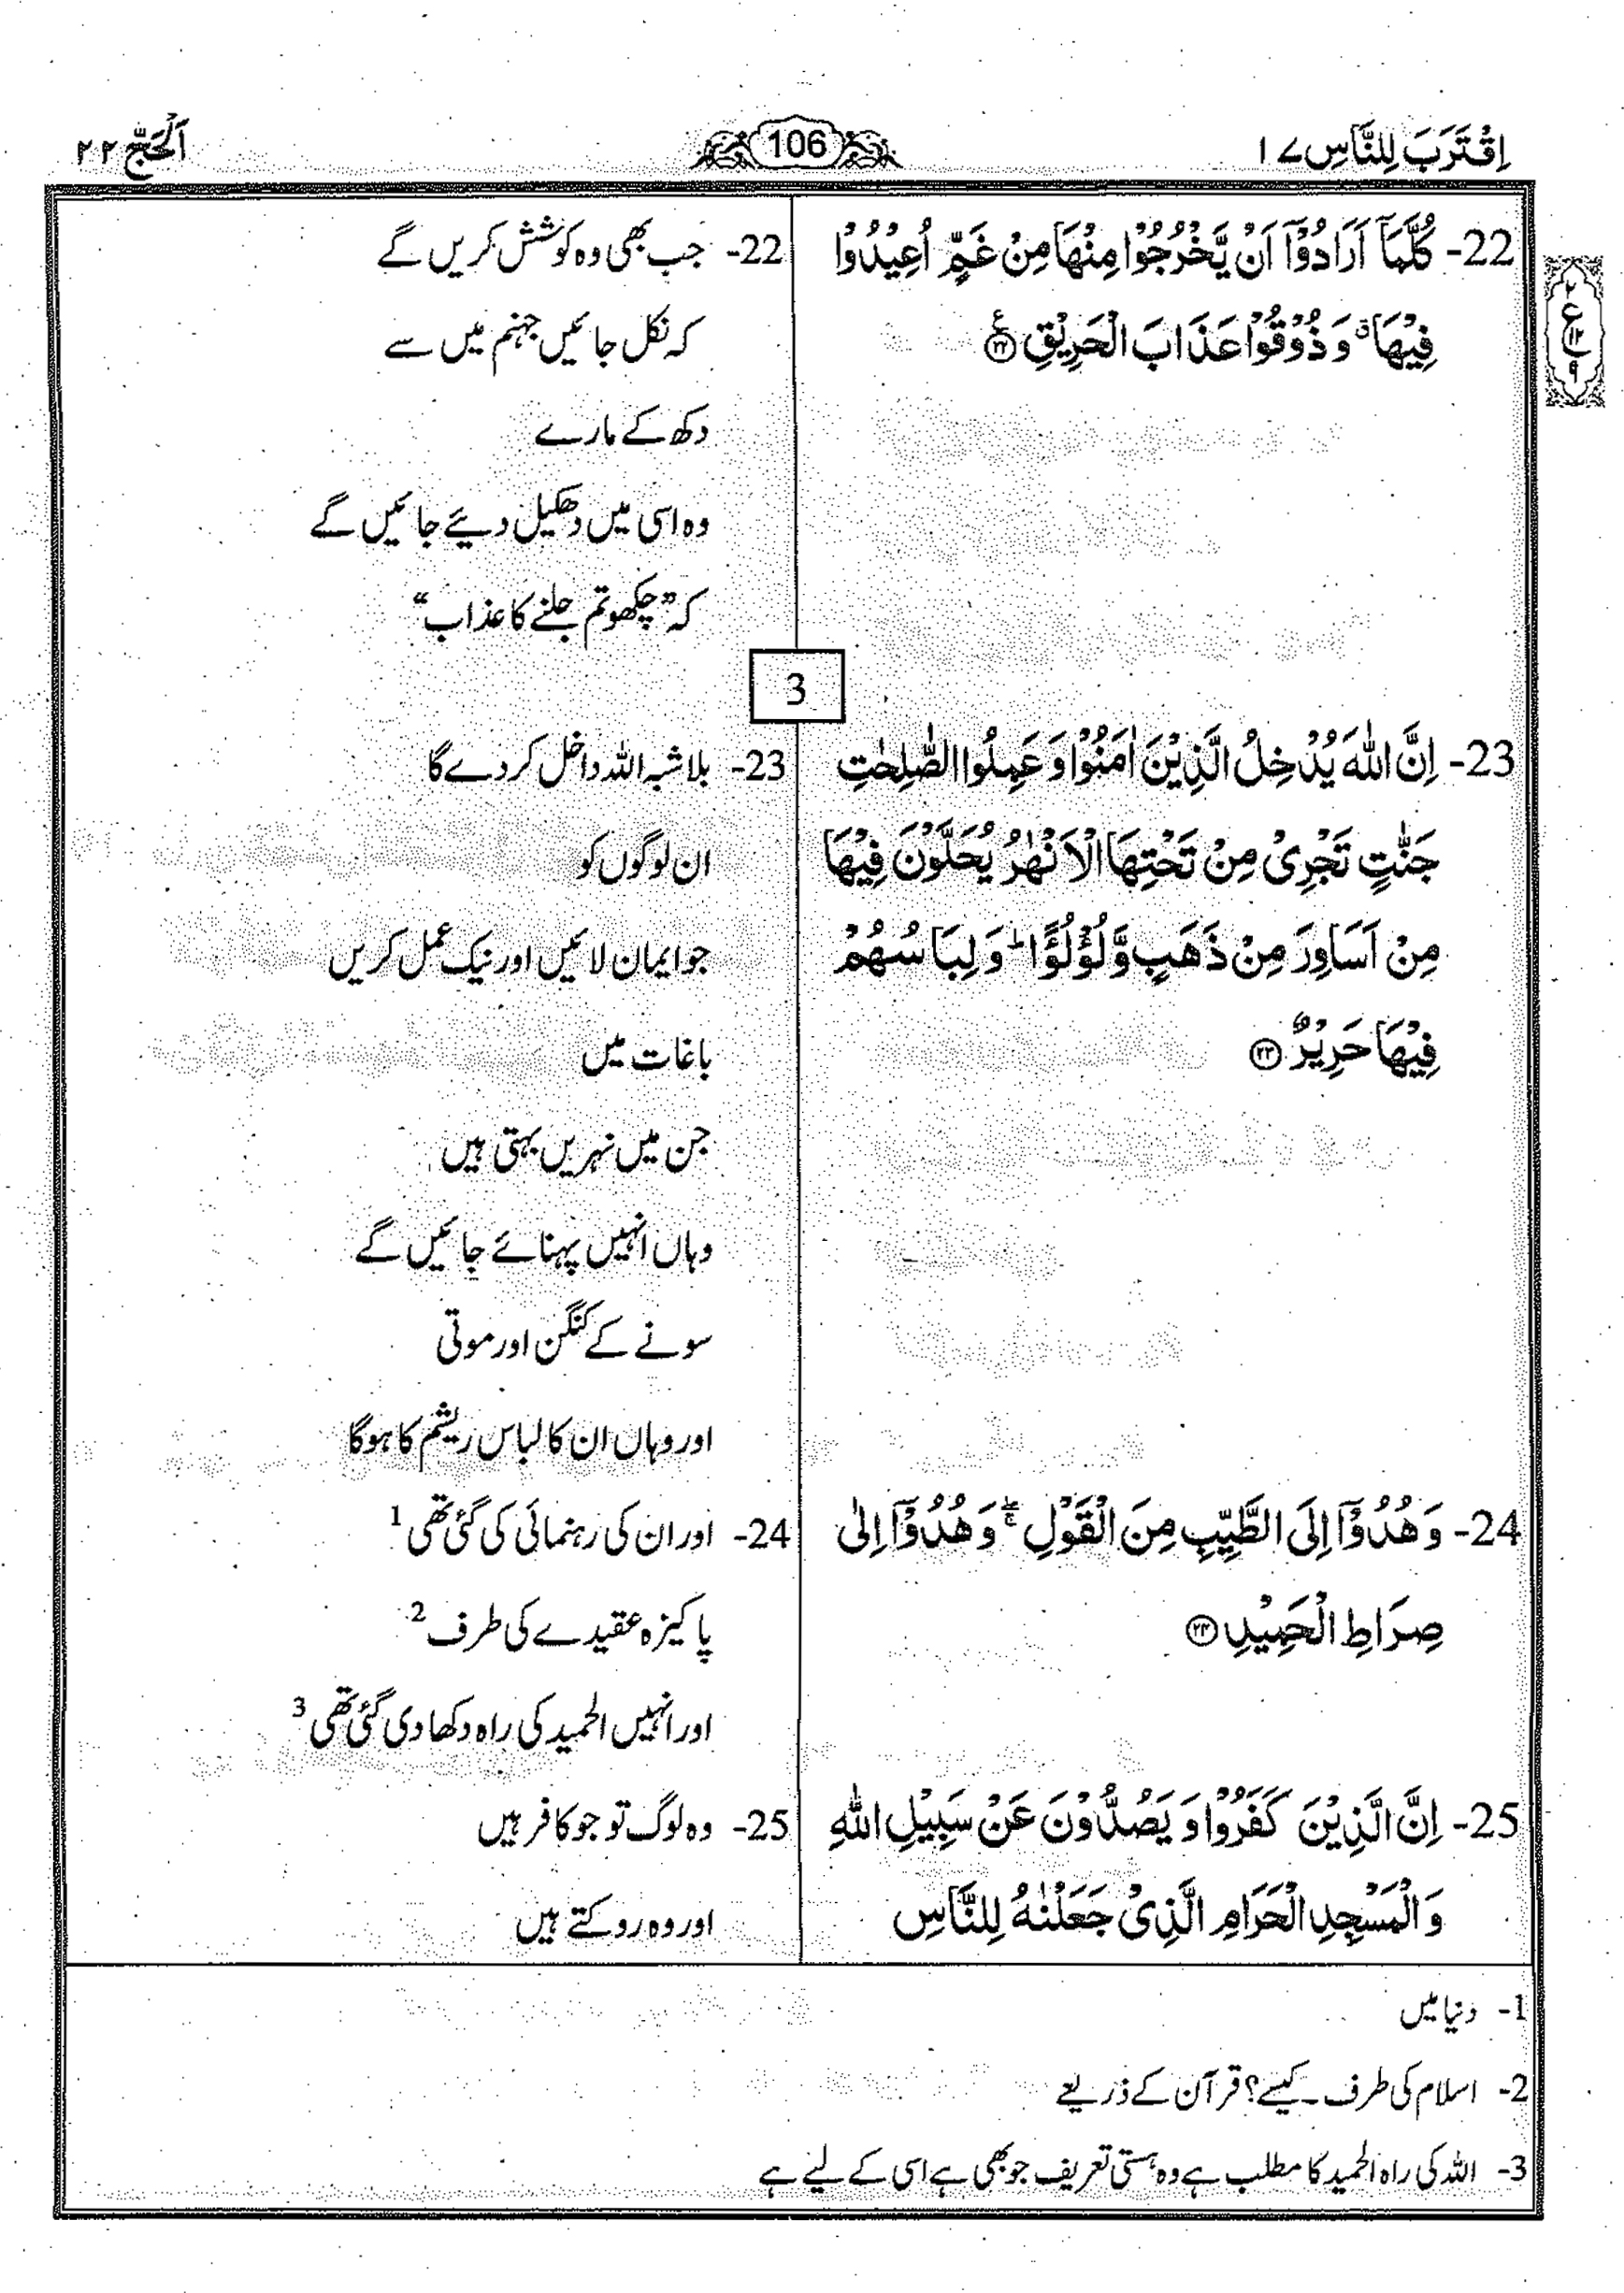 اِقْتَرَبَ لِلنَّاسِ ۱۷
106
اَلْحَجّ ۲۲
22- كُلَّمَاۤ اَرَادُوْۤا اَنْ یَّخْرُجُوْا مِنْهَا مِنْ غَمٍّ اُعِیْدُوْا
فِیْهَا ۗ وَ ذُوْقُوْا عَذَابَ الْحَرِیْقِ ﴿۲۲﴾
ع
۲
۱۲
۹
22- جب بھی وہ کوشش کریں گے
کہ نکل جائیں جہنم میں سے
دکھ کے مارے
وہ اسی میں دھکیل دیئے جائیں گے
کہ ”چکھو تم جلنے کا عذاب“
3
23- اِنَّ اللّٰهَ یُدْخِلُ الَّذِیْنَ اٰمَنُوْا وَ عَمِلُوا الصّٰلِحٰتِ
جَنّٰتٍ تَجْرِیْ مِنْ تَحْتِهَا الْاَنْهٰرُ یُحَلَّوْنَ فِیْهَا
مِنْ اَسَاوِرَ مِنْ ذَهَبٍ وَّ لُؤْلُؤًا ؕ وَ لِبَاسُهُمْ
فِیْهَا حَرِیْرٌ ﴿۲۳﴾
23- بلاشبہ اللہ داخل کر دے گا
ان لوگوں کو
جو ایمان لائیں اور نیک عمل کریں
باغات میں
جن میں نہریں بہتی ہیں
وہاں انہیں پہنائے جائیں گے
سونے کے کنگن اور موتی
اور وہاں ان کا لباس ریشم کا ہوگا
24- وَ هُدُوْۤا اِلَی الطَّیِّبِ مِنَ الْقَوْلِ ۚۖ وَ هُدُوْۤا اِلٰی
صِرَاطِ الْحَمِیْدِ ﴿۲۴﴾
24- اور ان کی رہنمائی کی گئی تھی 1
پاکیزہ عقیدے کی طرف 2
اور انہیں الحمید کی راہ دکھا دی گئی تھی 3
25- اِنَّ الَّذِیْنَ كَفَرُوْا وَ یَصُدُّوْنَ عَنْ سَبِیْلِ اللّٰهِ
وَ الْمَسْجِدِ الْحَرَامِ الَّذِیْ جَعَلْنٰهُ لِلنَّاسِ
25- وہ لوگ تو جو کافر ہیں
اور وہ روکتے ہیں
1- دنیا میں
2- اسلام کی طرف۔ کیسے؟ قرآن کے ذریعے
3- اللہ کی راہ الحمید کا مطلب ہے وہ ہستی تعریف جو بھی ہے اسی کے لیے ہے